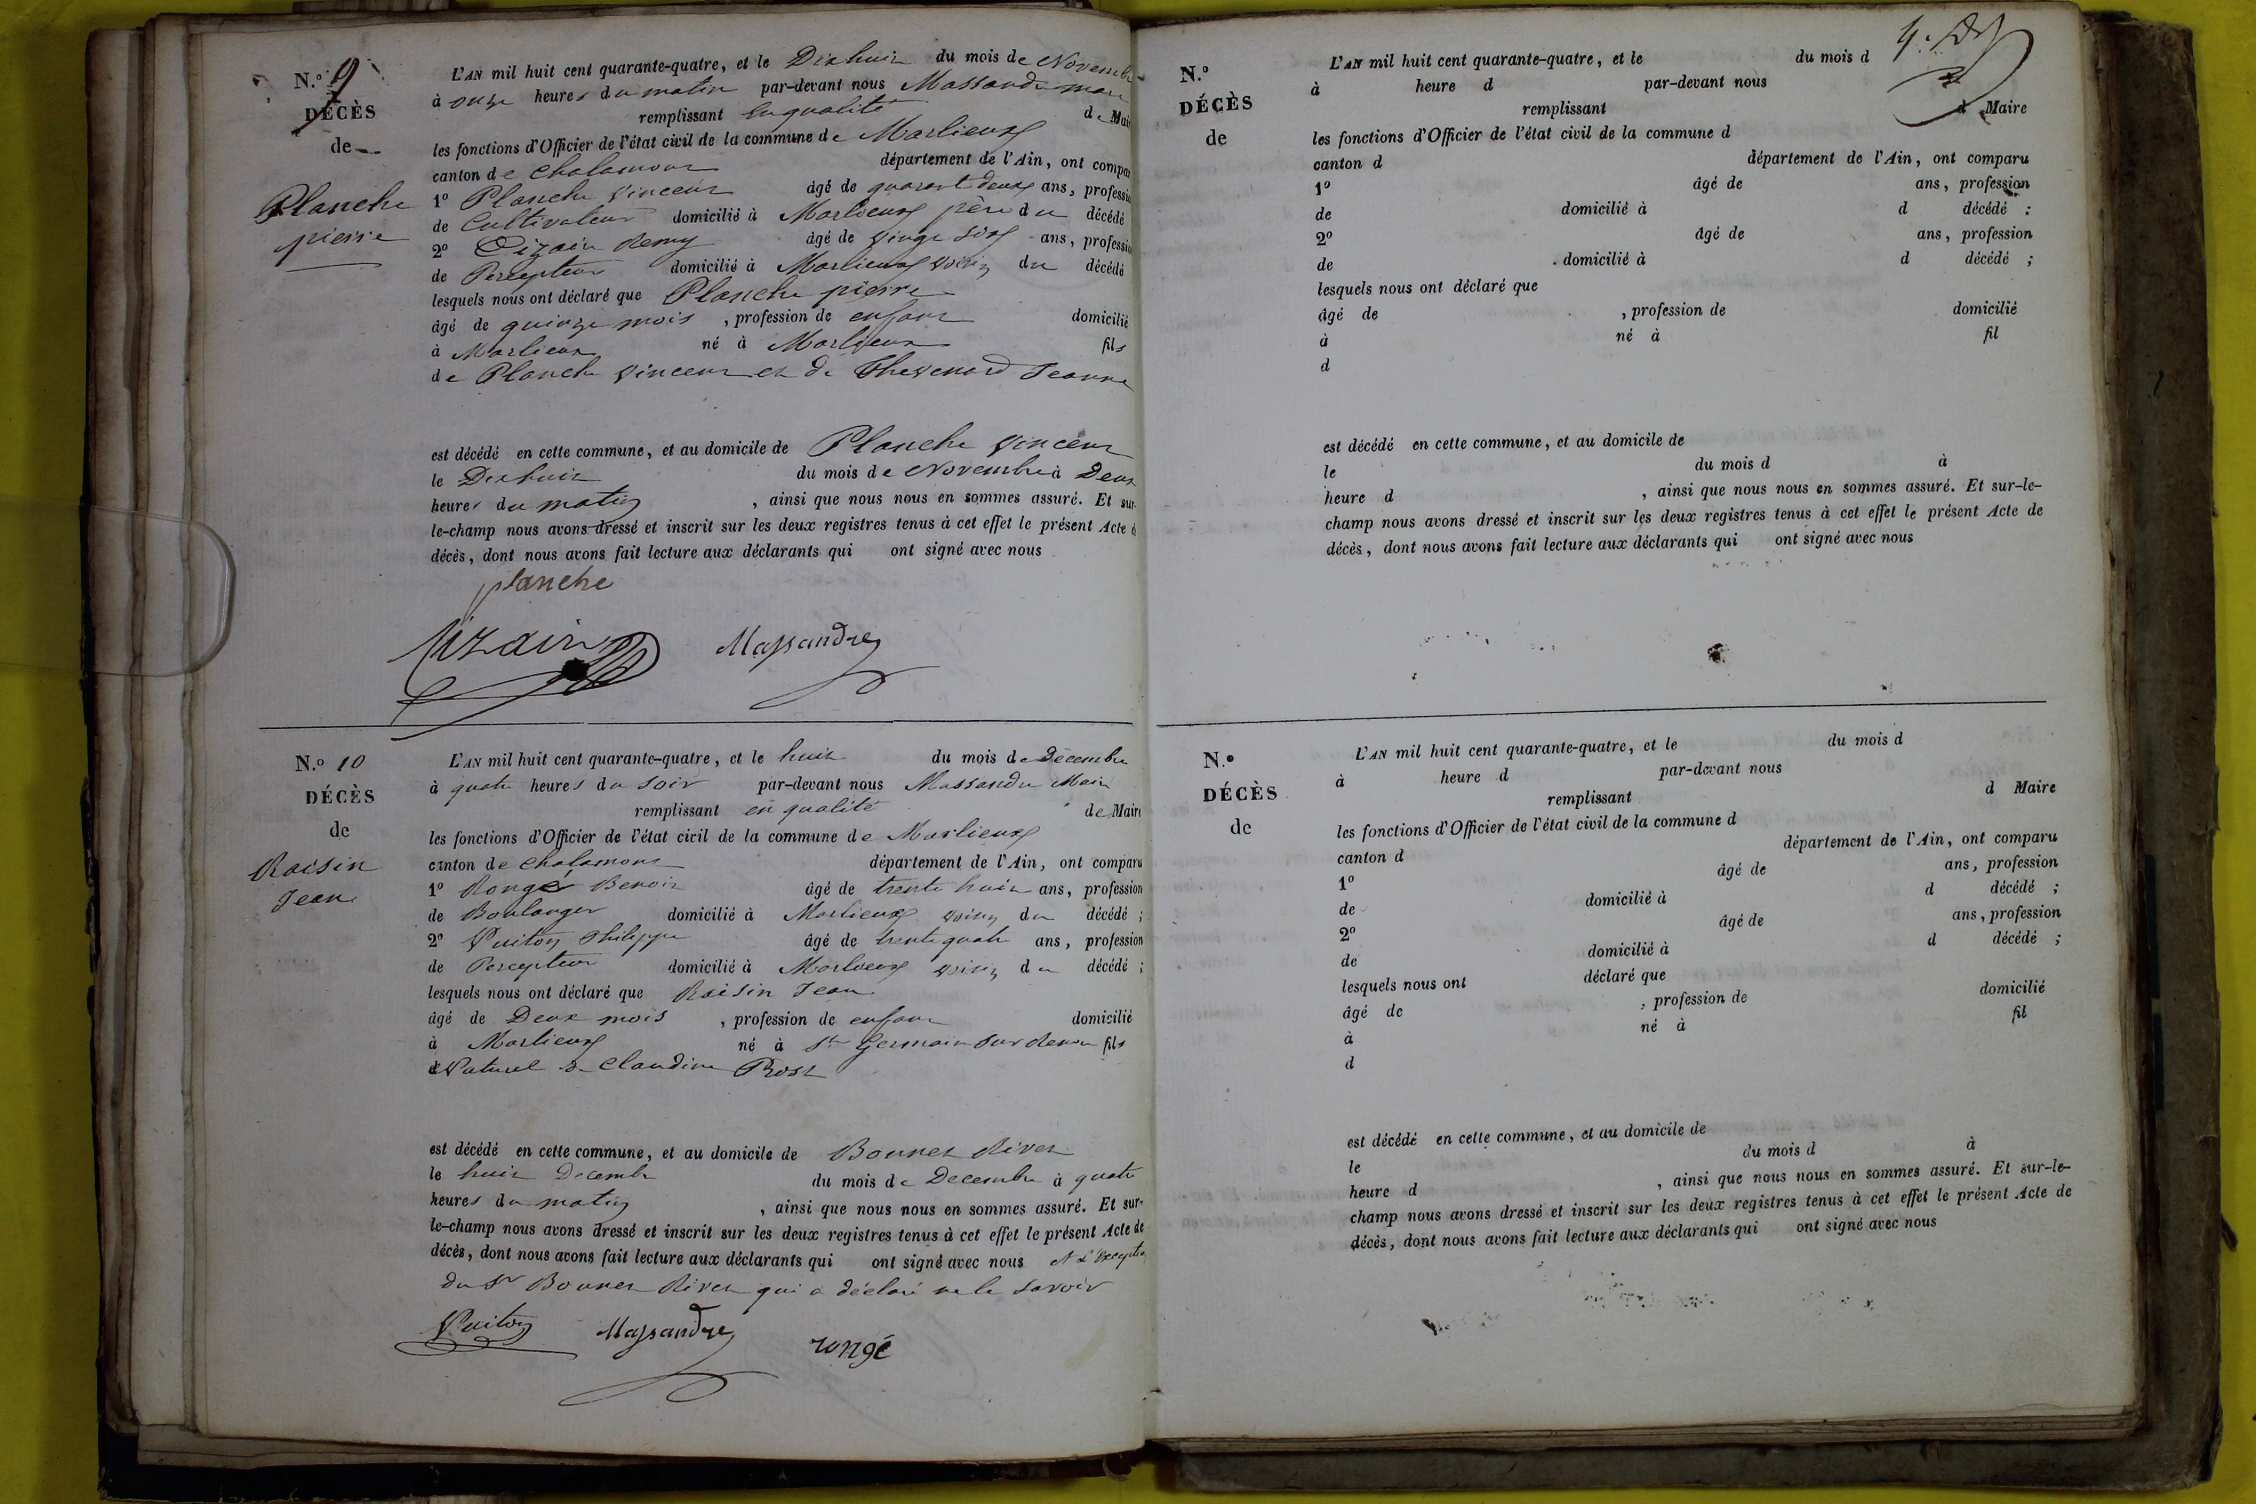 N.º 9
DÉCÈS
de
Planche
pierre
L'AN mil huit cent quarante-quatre, et le Dixhuit du mois de Novembre
à onze heures du matin par-devant nous Massandre maire
remplissant En qualité de Maire
les fonctions d'Officier de l'état civil de la commune de Marlieux
canton de Chalamont département de l'Ain, ont comparu
1º Planche Vincent âgé de quarant deux ans, profession
de Cultivateur domicilié à Marlieux père du décédé
2º Cizain Remy âgé de vingt six ans, profession
de Percepteur domicilié à Marlieux voisin du décédé
lesquels nous ont déclaré que Planche pierre
âgé de quinze mois , profession de enfant domicilié
à Marlieux né à Marlieux fils
de Planche Vincent et de Thevenard Jeanne
est décédé en cette commune, et au domicile de Planche Vincent
le Dixhuit du mois de Novembre à Deux
heures du matin , ainsi que nous nous en sommes assuré. Et sur-
le-champ nous avons dressé et inscrit sur les deux registres tenus à cet effet le présent Acte d
décès, dont nous avons fait lecture aux déclarants qui ont signé avec nous
planche
Cizain Massandre
N.º 10
DÉCÈS
de
Raisin
Jean
L'AN mil huit cent quarante-quatre, et le huit du mois de Décembre
à quatre heures du soir par-devant nous Massandre Maire
remplissant en qualité de Maire
les fonctions d'Officier de l'état civil de la commune de Marlieux
canton de Chalamont département de l'Ain, ont comparu
1º Rongé Benoit âgé de trente huit ans, profession
de Boulanger domicilié à Marlieux voisin du décédé ;
2º Vuiton Philippe âgé de trente quatre ans, profession
de Percepteur domicilié à Marlieux voisin du décédé ;
lesquels nous ont déclaré que Raisin Jean
âgé de Deux mois , profession de enfant domicilié
à Marlieux né à St Germain sur Renon fils
Naturel de Claudine Rost
est décédé en cette commune, et au domicile de Bonnet River
le huit Decembre du mois de Decembre à quatre
heures du matin , ainsi que nous nous en sommes assuré. Et sur-
le-champ nous avons dressé et inscrit sur les deux registres tenus à cet effet le présent Acte de
décès, dont nous avons fait lecture aux déclarants qui ont signé avec nous A L'exception
du Sr Bonnet River qui a déclaré ne le savoir
Vuiton Massandre rongé
N.º
DÉCÈS
de
L'AN mil huit cent quarante-quatre, et le du mois d
à heure d par-devant nous
remplissant d Maire
les fonctions d'Officier de l'état civil de la commune d
canton d département de l'Ain, ont comparu
1º âgé de ans, profession
de domicilié à d décédé ;
2º âgé de ans, profession
de domicilié à d décédé ;
lesquels nous ont déclaré que
âgé de , profession de domicilié
à né à fil
d
est décédé en cette commune, et au domicile de
le du mois d à
heure d , ainsi que nous nous en sommes assuré. Et sur-le-
champ nous avons dressé et inscrit sur les deux registres tenus à cet effet le présent Acte de
décès, dont nous avons fait lecture aux déclarants qui ont signé avec nous
N.º
DÉCÈS
de
L'AN mil huit cent quarante-quatre, et le du mois d
à heure d par-devant nous
remplissant d Maire
les fonctions d'Officier de l'état civil de la commune d
canton d département de l'Ain, ont comparu
1º âgé de ans, profession
de domicilié à d décédé ;
2º âgé de ans, profession
de domicilié à d décédé ;
lesquels nous ont déclaré que
âgé de , profession de domicilié
à né à fil
d
est décédé en cette commune, et au domicile de
le du mois d à
heure d , ainsi que nous nous en sommes assuré. Et sur-le-
champ nous avons dressé et inscrit sur les deux registres tenus à cet effet le présent Acte de
décès, dont nous avons fait lecture aux déclarants qui ont signé avec nous